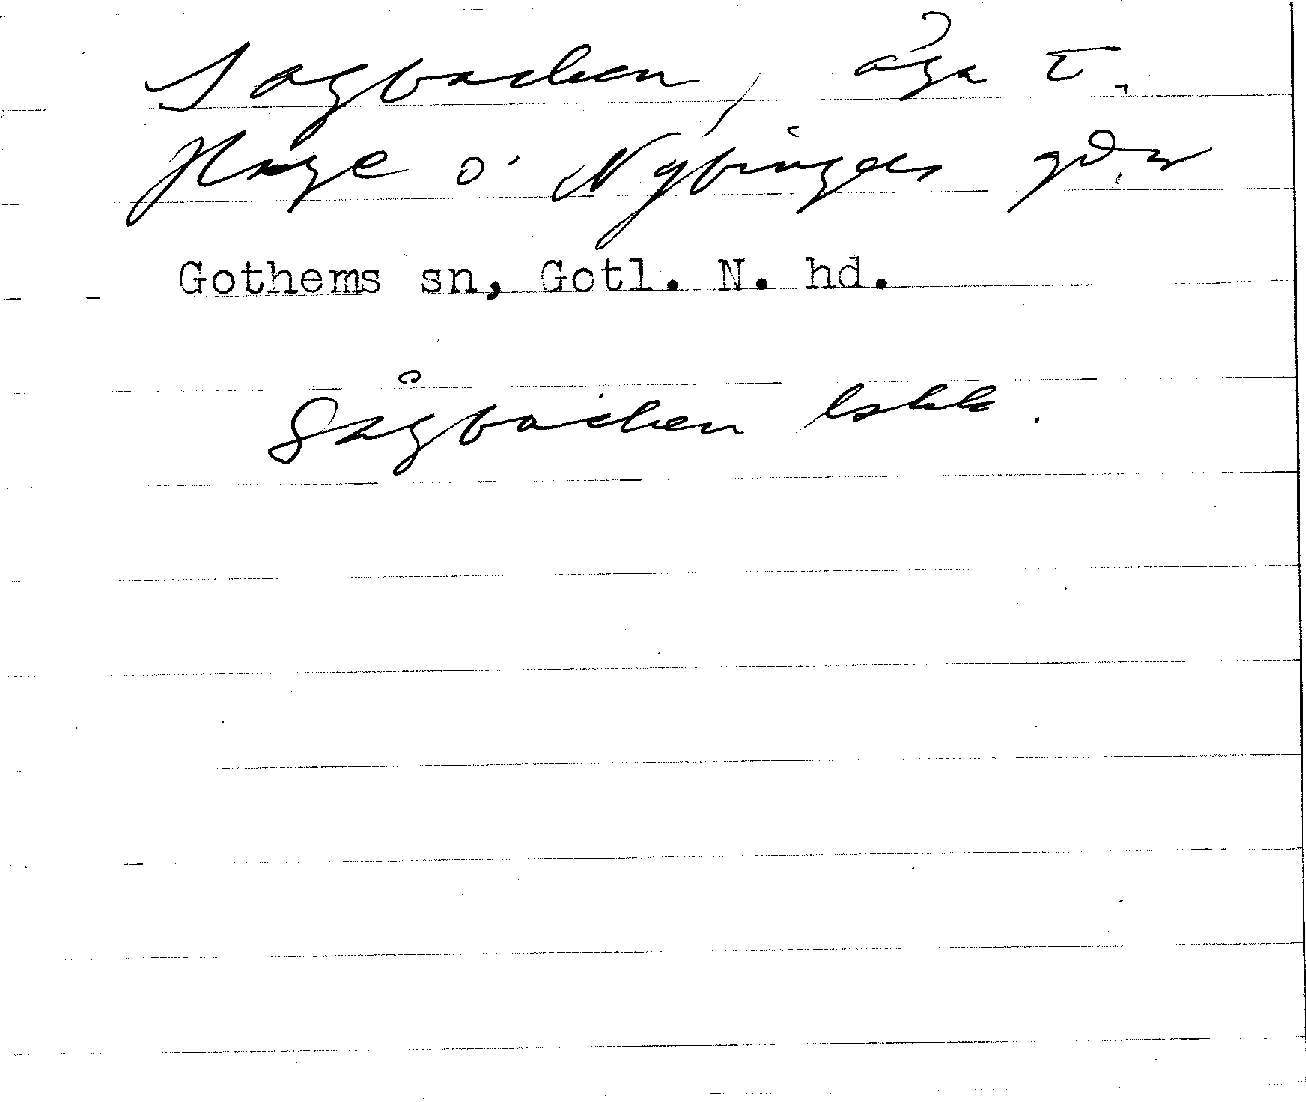 Sagbacken, äga t.
Hage o. Nybinges
Gothems sn, Gotl. N. hd.
Sågbacken